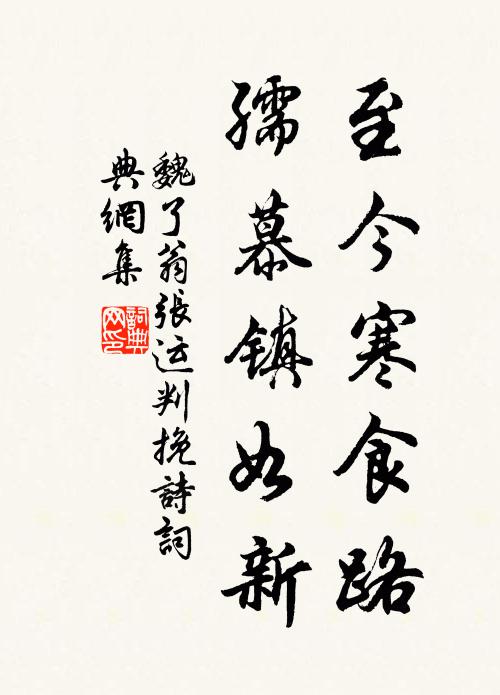 至今寒食路
孺慕镇如新
魏了翁張运判挽詩詞
典網集
詞典网印